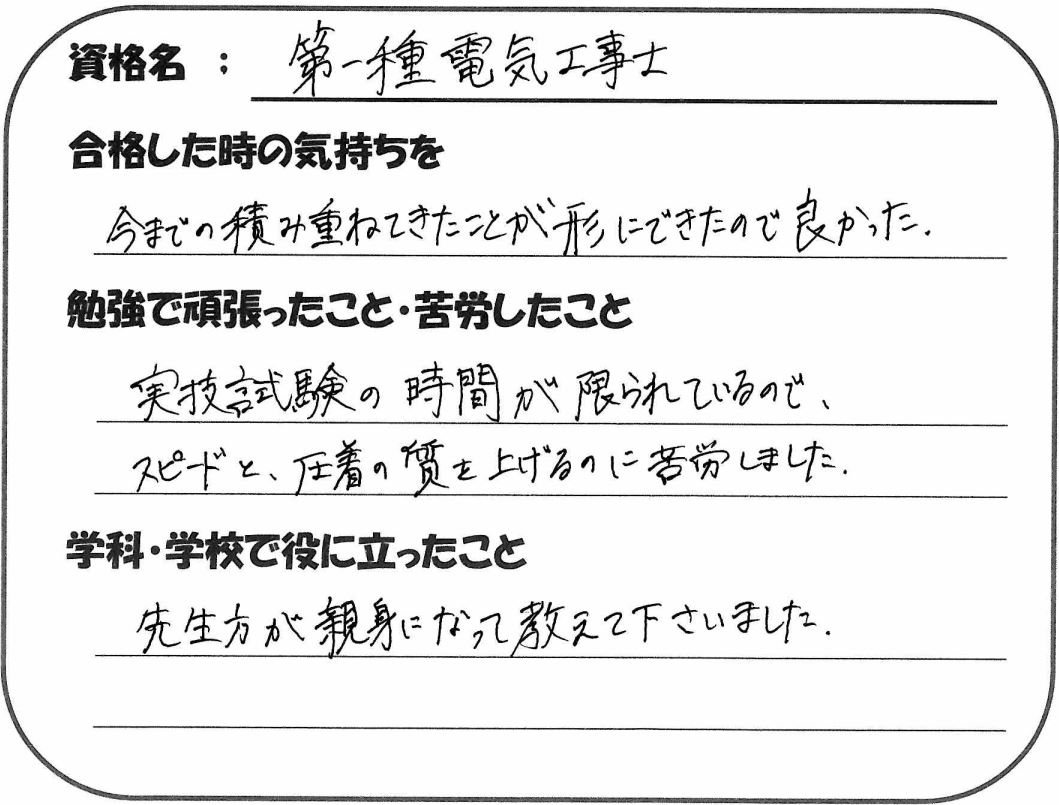 資格名 ： 第一種電気工事士
合格した時の気持ちを
今までの積み重ねてきたことが形にできたので良かった.
勉強で頑張ったこと・苦労したこと
実技試験の時間が限られているので、
スピードと、圧着の質を上げるのに苦労しました.
学科・学校で役に立ったこと
先生方が親身になって教えて下さいました.